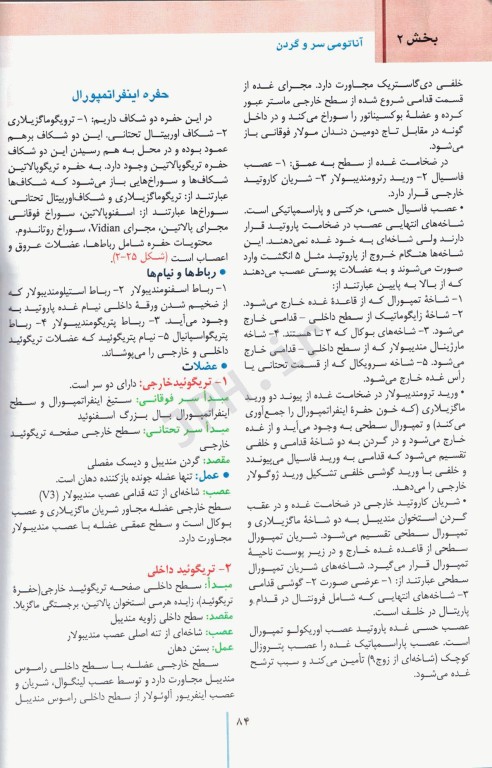 بخش ۲
آناتومی سر و گردن
خلفی دی‌گاستریک مجاورت دارد. مجرای غده از
قسمت قدامی شروع شده از سطح خارجی ماستر عبور
کرده و عضلهٔ بوکسیناتور را سوراخ می‌کند و در داخل
گونه در مقابل تاج دومین دندان مولار فوقانی باز
می‌شود.
در ضخامت غده از سطح به عمق: ۱- عصب
فاسیال ۲- ورید رترومندیبولار ۳- شریان کاروتید
خارجی قرار دارد.
• عصب فاسیال حسی، حرکتی و پاراسمپاتیکی است.
شاخه‌های انتهایی عصب در ضخامت پاروتید قرار
دارند ولی شاخه‌ای به خود غده نمی‌دهند. این
شاخه‌ها هنگام خروج از پاروتید مثل ۵ انگشت وارد
صورت می‌شوند و به عضلات پوستی عصب می‌دهند
که از بالا به پایین عبارتند از:
۱- شاخهٔ تمپورال که از قاعدهٔ غده خارج می‌شود.
۲- شاخهٔ زایگوماتیک از سطح داخلی - قدامی خارج
می‌شود. ۳- شاخه‌های بوکال که ۲ تا هستند. ۴- شاخه
مارژینال مندیبولار که از سطح داخلی - قدامی خارج
می‌شود. ۵- شاخه سرویکال که از قسمت تحتانی یا
رأس غده خارج می‌شود.
• ورید ترومندیبولار در ضخامت غده از پیوند دو ورید
ماگزیلاری (که خون حفرهٔ اینفراتمپورال را جمع‌آوری
می‌کند) و تمپورال سطحی به وجود می‌آید و از غده
خارج می‌شود و در گردن به دو شاخهٔ قدامی و خلفی
تقسیم می‌شود که قدامی به ورید فاسیال می‌پیوندد
و خلفی با ورید گوشی خلفی تشکیل ورید ژوگولار
خارجی را می‌دهد.
• شریان کاروتید خارجی در ضخامت غده و در عقب
گردن استخوان مندیبل به دو شاخهٔ ماگزیلاری و
تمپورال سطحی تقسیم می‌شود. شریان تمپورال
سطحی از قاعده غده خارج و در زیر پوست ناحیهٔ
تمپورال قرار می‌گیرد. شاخه‌های شریان تمپورال
سطحی عبارتند از: ۱- عرضی صورت ۲- گوشی قدامی
۳- شاخه‌های انتهایی که شامل فرونتال در قدام و
پاریتال در خلف است.
عصب حسی غده پاروتید عصب اوریکولو تمپورال
است. عصب پاراسمپاتیک غده را عصب پتروزال
کوچک (شاخه‌ای از زوج۹) تأمین می‌کند و سبب ترشح
غده می‌شود.
حفره اینفراتمپورال
در این حفره دو شکاف داریم: ۱- ترویگوماگزیلاری
۲- شکاف اوربیتال تحتانی. این دو شکاف برهم
عمود بوده و در محل به هم رسیدن این دو شکاف
حفره تریگوپالاتین وجود دارد. به حفره تریگوپالاتین
شکاف‌ها و سوراخ‌هایی باز می‌شود که شکاف‌ها
عبارتند از: تریگوماگزیلاری و شکاف‌اوربیتال تحتانی.
سوراخ‌ها عبارتند از: اسفنوپالاتین، سوراخ فوقانی
مجرای پالاتین، مجرای Vidian، سوراخ روتاندوم.
محتویات حفره شامل رباط‌ها، عضلات عروق و
اعصاب است (شکل ۲۵-۲).
• رباط‌ها و نیام‌ها
۱- رباط اسفنومندیبولار ۲- رباط استیلومندیبولار که
از ضخیم شدن ورقهٔ داخلی نیام غده پاروتید به
وجود می‌آید. ۳- رباط پتریگومندیبولار ۴- رباط
پتریگواسپانیال ۵- نیام پتریگوئید که عضلات تریگوئید
داخلی و خارجی را می‌پوشاند.
• عضلات
۱- تریگوئیدخارجی: دارای دو سر است.
مبدأ سر فوقانی: ستیغ اینفراتمپورال و سطح
اینفراتمپورال بال بزرگ اسفنوئید
مبدأ سر تحتانی: سطح خارجی صفحه تریگوئید
خارجی
مقصد: گردن مندیبل و دیسک مفصلی
• عمل: تنها عضله جونده بازکننده دهان است.
عصب: شاخه‌ای از تنه قدامی عصب مندیبولار (V3)
سطح خارجی عضله مجاور شریان ماگزیلاری و عصب
بوکال است و سطح عمقی عضله با عصب مندیبولار
مجاورت دارد.
۲- تریگوئید داخلی
مبدأ: سطح داخلی صفحه تریگوئید خارجی(حفرهٔ
تریگوئید)، زایده هرمی استخوان پالاتین، برجستگی ماگزیلا.
مقصد: سطح داخلی زاویه مندیبل
عصب: شاخه‌ای از تنه اصلی عصب مندیبولار
عمل: بستن دهان
سطح خارجی عضله با سطح داخلی راموس
مندیبل مجاورت دارد و توسط عصب لینگوال، شریان و
عصب اینفریور آلوئولار از سطح داخلی راموس مندیبل
۸۴